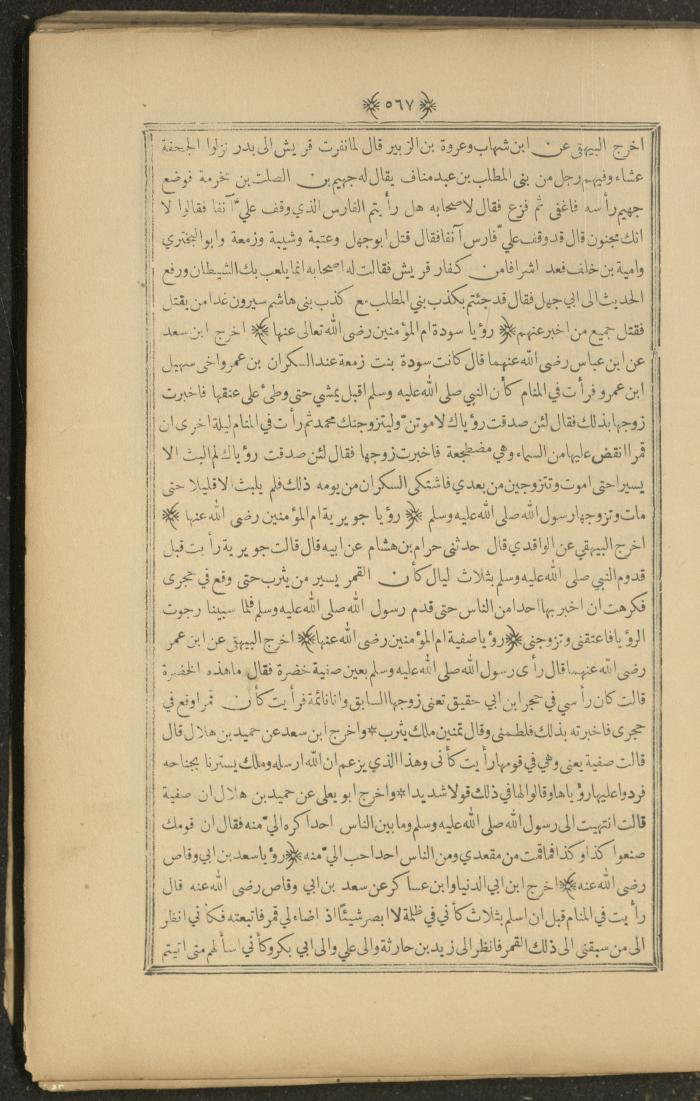 ٥٦٧
اخرج البيهقي عن ابن شهاب وعروة بن الزبير قال لما نفرت قريش الى بدر نزلوا الجحفة
عشاء وفيهم رجل من بني المطلب بن عبد مناف يقال له جهيم بن الصلت بن مخرمة فوضع
جهيم رأسه فاغفى ثم فزع فقال لاصحابه هل رأيتم الفارس الذي وقف عليّ آنفا فقالوا لا
انك مجنون قال قد وقف عليّ فارس آنفا فقال قتل ابو جهل وعتبة وشيبة وزمعة وابو البختري
وامية بن خلف فعد اشرافا من كفار قريش فقالت له اصحابه انما يلعب بك الشيطان ورفع
الحديث الى ابي جهل فقال قد جئتم بكذب بني المطلب مع كذب بني هاشم سيرون غدا من يقتل
فقتل جميع من اخبر عنهم ﴿ رؤيا سودة ام المؤمنين رضى الله تعالى عنها ﴾ اخرج ابن سعد
عن ابن عباس رضى الله عنهما قال كانت سودة بنت زمعة عند السكران بن عمرو اخي سهيل
ابن عمرو فرأت في المنام كأن النبي صلى الله عليه وسلم اقبل يمشي حتى وطئ على عنقها فاخبرت
زوجها بذلك فقال لئن صدقت رؤياك لاموتنّ وليتزوجنك محمد ثم رأت في المنام ليلة اخرى ان
قمرا انقض عليها من السماء وهي مضطجعة فاخبرت زوجها فقال لئن صدقت رؤياك لم البث الا
يسيرا حتى اموت وتتزوجين من بعدي فاشتكى السكران من يومه ذلك فلم يلبث الا قليلا حتى
مات وتزوجها رسول الله صلى الله عليه وسلم ﴿ رؤيا جويرية ام المؤمنين رضى الله عنها ﴾
اخرج البيهقي عن الواقدي قال حدثني حرام بن هشام عن ابيه قال قالت جويرية رأيت قبل
قدوم النبي صلى الله عليه وسلم بثلاث ليال كأن القمر يسير من يثرب حتى وقع في حجرى
فكرهت ان اخبر بها احدا من الناس حتى قدم رسول الله صلى الله عليه وسلم فلما سبينا رجوت
الرؤيا فاعتقني وتزوجني ﴿رؤيا صفية ام المؤمنين رضى الله عنها﴾ اخرج البيهقي عن ابن عمر
رضى الله عنهما قال رأى رسول الله صلى الله عليه وسلم بعين صفية خضرة فقال ما هذه الخضرة
قالت كان رأسي في حجر ابن ابي حقيق تعنى زوجها السابق وانا نائمة فرأيت كأن قمرا وقع في
حجرى فاخبرته بذلك فلطمني وقال تمنين ملك يثرب * واخرج ابن سعد عن حميد بن هلال قال
قالت صفية يعنى وهي في قومها رأيت كأنى وهذا الذي يزعم ان الله ارسله وملك يسترنا بجناحه
فردوا عليها رؤياها وقالوا لها في ذلك قولا شديدا * واخرج ابو يعلى عن حميد بن هلال ان صفية
قالت انتهيت الى رسول الله صلى الله عليه وسلم وما بين الناس احدا كره اليّ منه فقال ان قومك
صنعوا كذا وكذا فما قمت من مقعدي ومن الناس احدا حب اليّ منه ﴿رؤيا سعد بن ابي وقاص
رضى الله عنه﴾ اخرج ابن ابي الدنيا وابن عساكر عن سعد بن ابي وقاص رضى الله عنه قال
رأيت في المنام قبل ان اسلم بثلاث كأني في ظلمة لا ابصر شيئًا اذ اضاء لي قمر فاتبعته فكأني انظر
الى من سبقنى الى ذلك القمر فانظر الى زيد بن حارثة والى علي والى ابي بكر وكأني اسألهم متى اتيتم